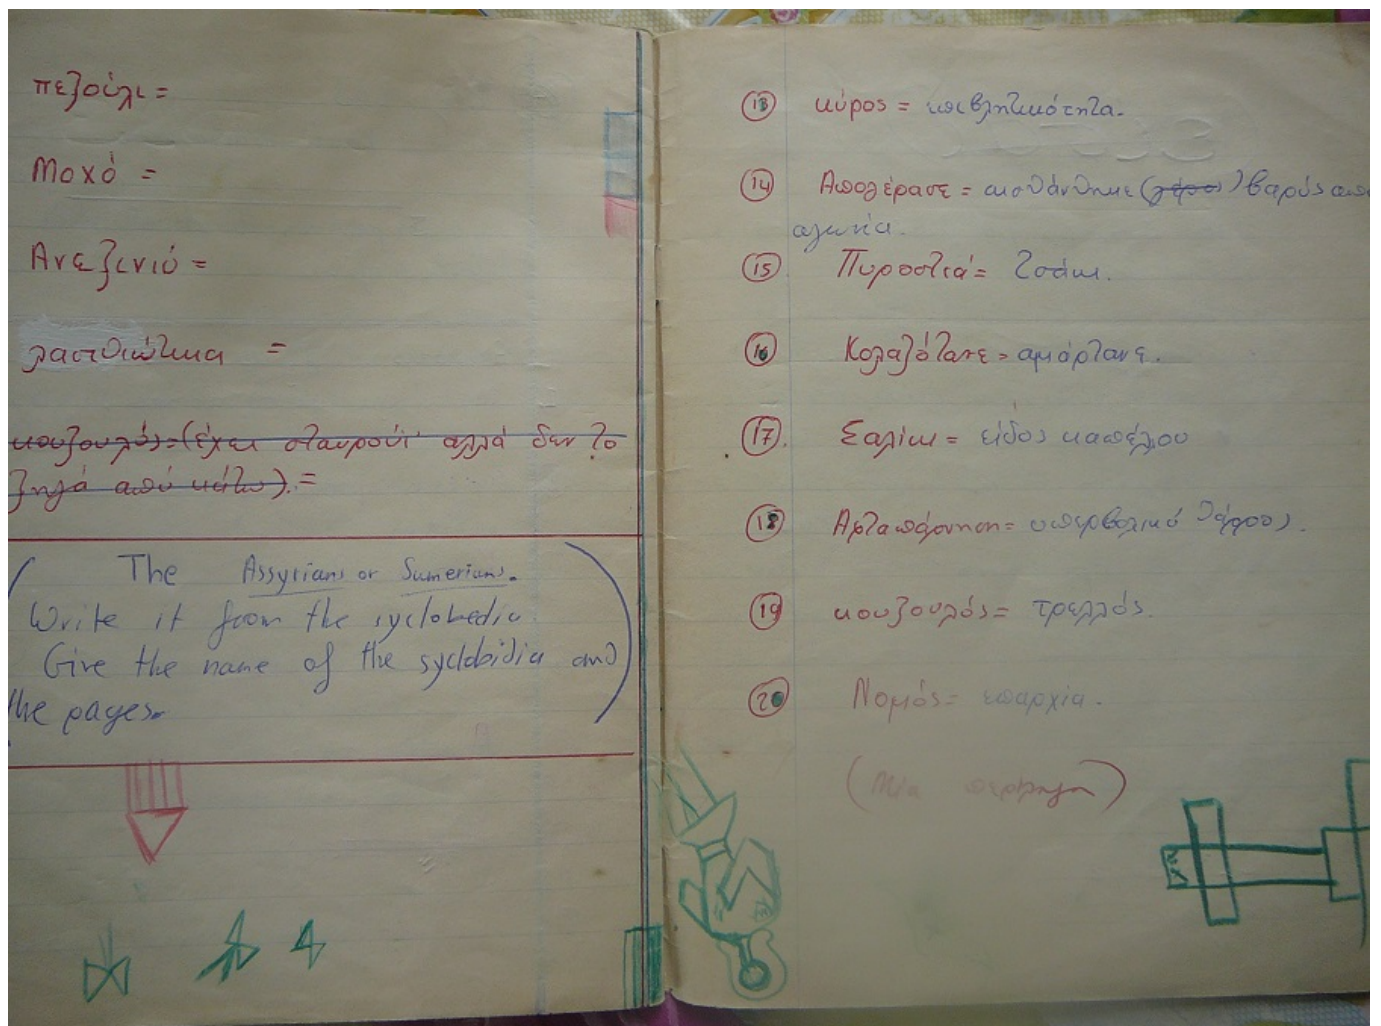 πεζούλι =
Μοχό =
Ανεζινιό =
λασιθιώτικα =
κουζουλός=(έχει σταυρούι αλλά δεν το
ζηλά από κάτω). =
(The Assyrians or Sumerians.
Write it from the syclobedia.
Give the name of the syclobidia and
the pages.)
13 κύρος =
14 Απολέρασε = αισθάνθηκε (λέρος) βαρύς από
αγωνία.
15 Πυροστιά = Τσάκι.
16 Κολαζότανε = αμάρτανε.
17. Σαλίκι = είδος καπέλιου
18 = υπερβολικό θάρρος).
19 κουζουλός = τρελλός.
20 Νομός = επαρχία.
(Μία)